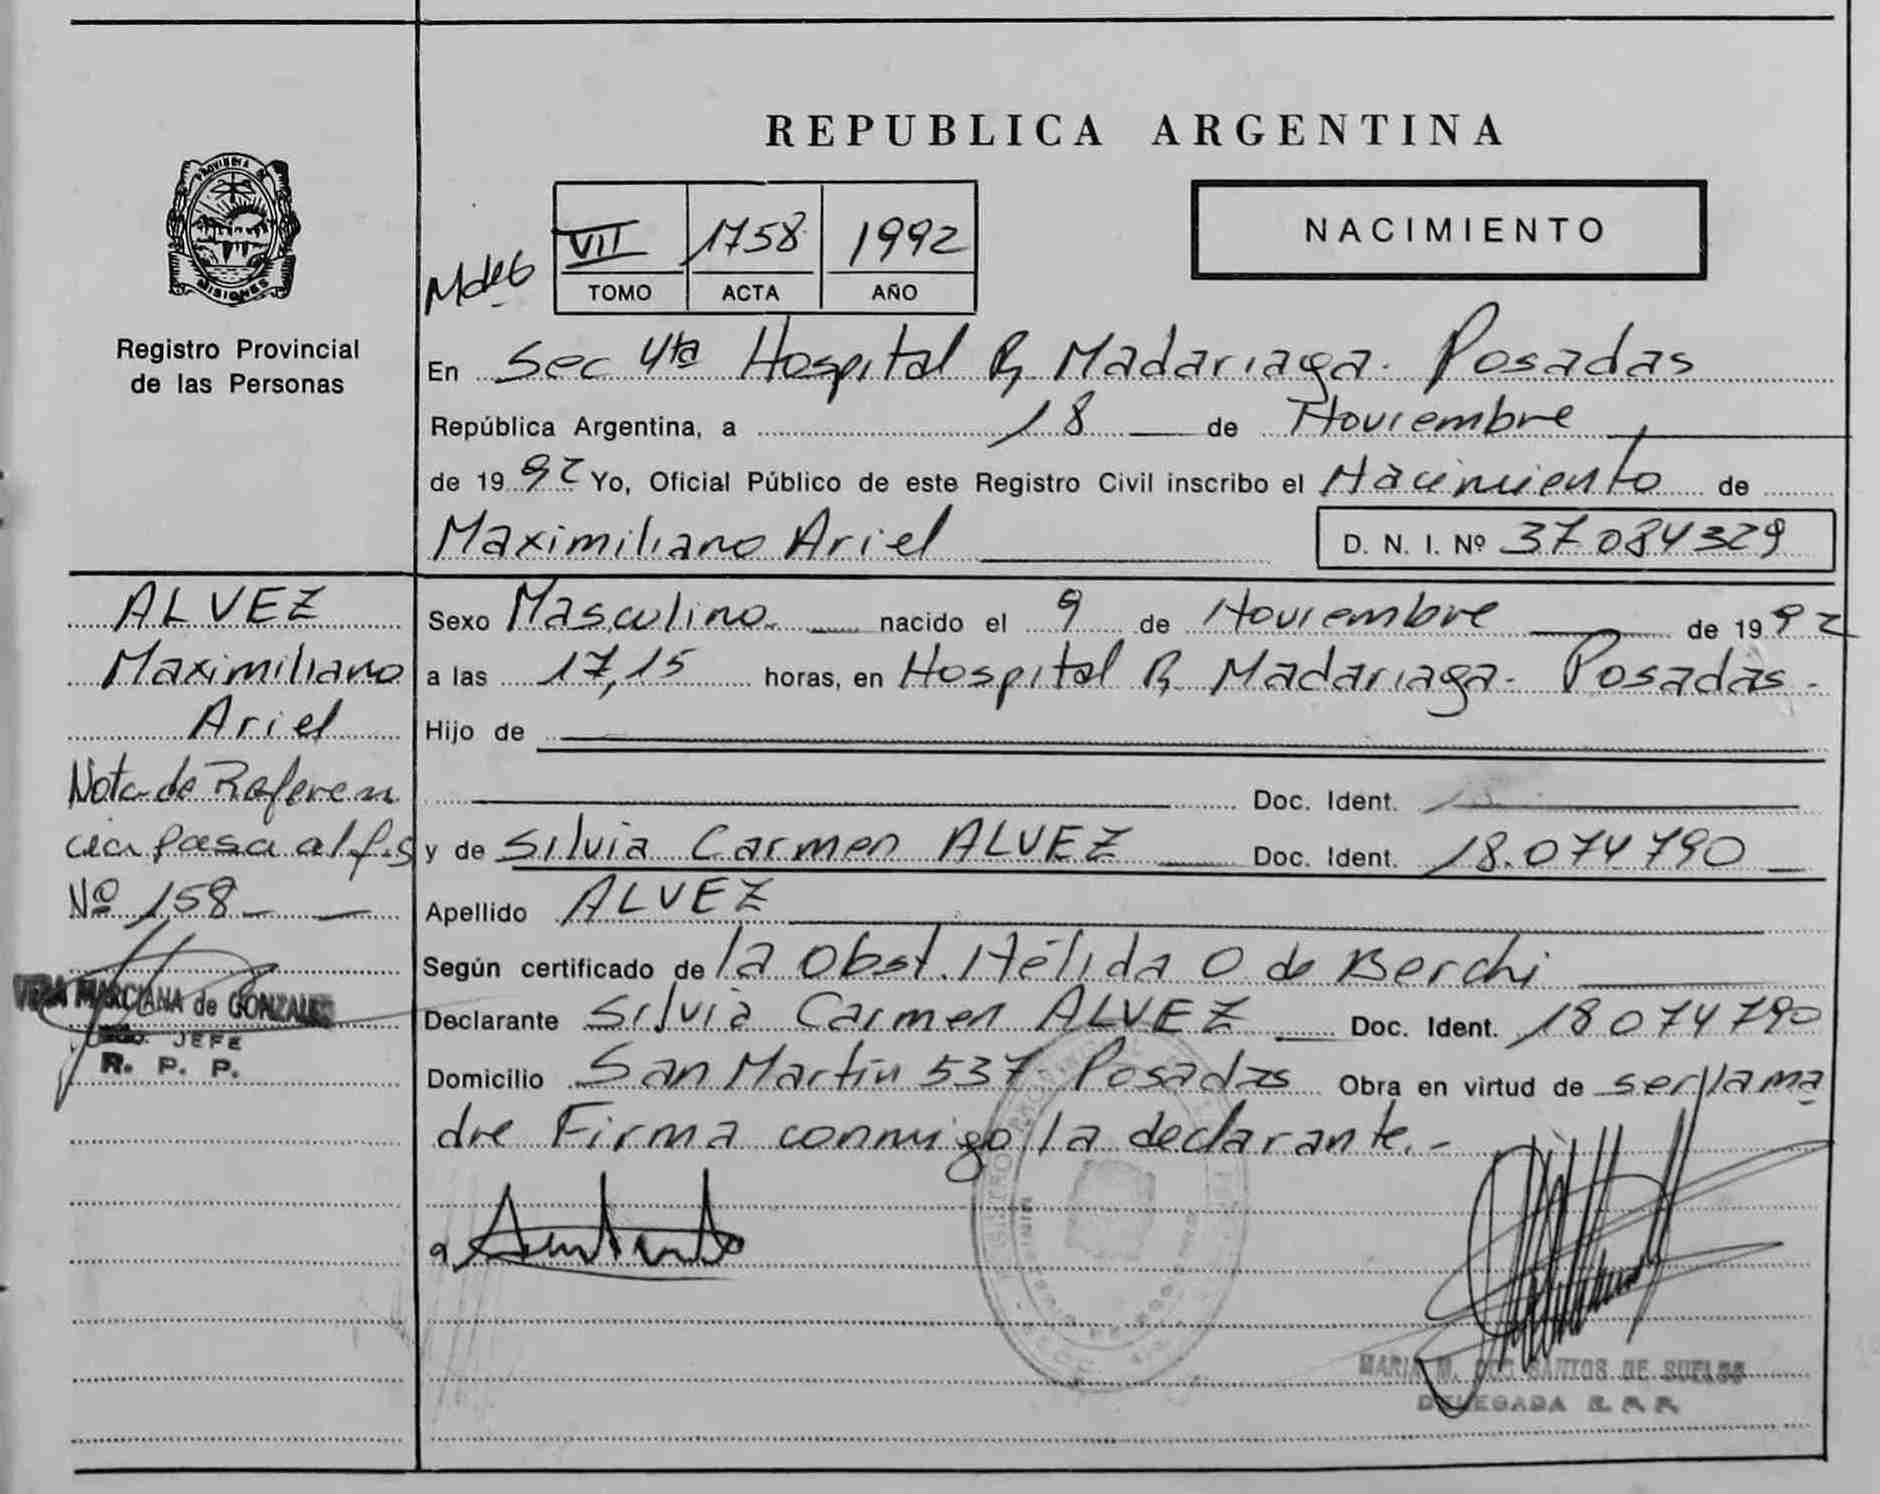 REPUBLICA ARGENTINA
PROVINCIA DE
MISIONES
Registro Provincial
de las Personas
VII 1758 1992
TOMO ACTA AÑO
NACIMIENTO
En Sec 4ta Hospital R Madariaga. Posadas
República Argentina, a 18 de Noviembre
de 1992 Yo, Oficial Público de este Registro Civil inscribo el Nacimiento de
Maximiliano Ariel D. N. I. Nº 37084329
ALVEZ
Maximiliano
Ariel
Nota de Referen
cia pasa al f.s
Nº 158
VERA MARCIANA de GONZALEZ
JEFE
R. P. P.
Sexo Masculino. nacido el 9 de Noviembre de 1992
a las 17,15 horas, en Hospital R Madariaga. Posadas.
Hijo de
Doc. Ident.
y de Silvia Carmen ALVEZ Doc. Ident. 18.074790
Apellido ALVEZ
Según certificado de la Obst. Hélida O de Berchi
Declarante Silvia Carmen ALVEZ Doc. Ident. 18074790
Domicilio San Martín 537 Posadas Obra en virtud de ser la ma
dre Firma conmigo la declarante.-
MARIA M. DOS SANTOS DE SUELDO
DELEGADA R. P. P.